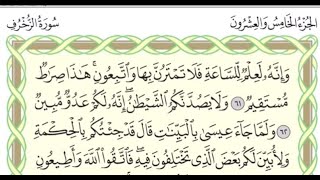 الجُزْءُ الخَامِسُ وَالعِشْرُونَ سُورَةُ الزُّخْرُفِ
وَإِنَّهُۥ لَعِلْمٌ لِّلسَّاعَةِ فَلَا تَمْتَرُنَّ بِهَا وَٱتَّبِعُونِ ۚ هَٰذَا صِرَٰطٌ
مُّسْتَقِيمٌ ٦١ وَلَا يَصُدَّنَّكُمُ ٱلشَّيْطَٰنُ ۖ إِنَّهُۥ لَكُمْ عَدُوٌّ مُّبِينٌ ٦٢
وَلَمَّا جَآءَ عِيسَىٰ بِٱلْبَيِّنَٰتِ قَالَ قَدْ جِئْتُكُم بِٱلْحِكْمَةِ
وَلِأُبَيِّنَ لَكُم بَعْضَ ٱلَّذِى تَخْتَلِفُونَ فِيهِ ۖ فَٱتَّقُوا۟ ٱللَّهَ وَأَطِيعُونِ